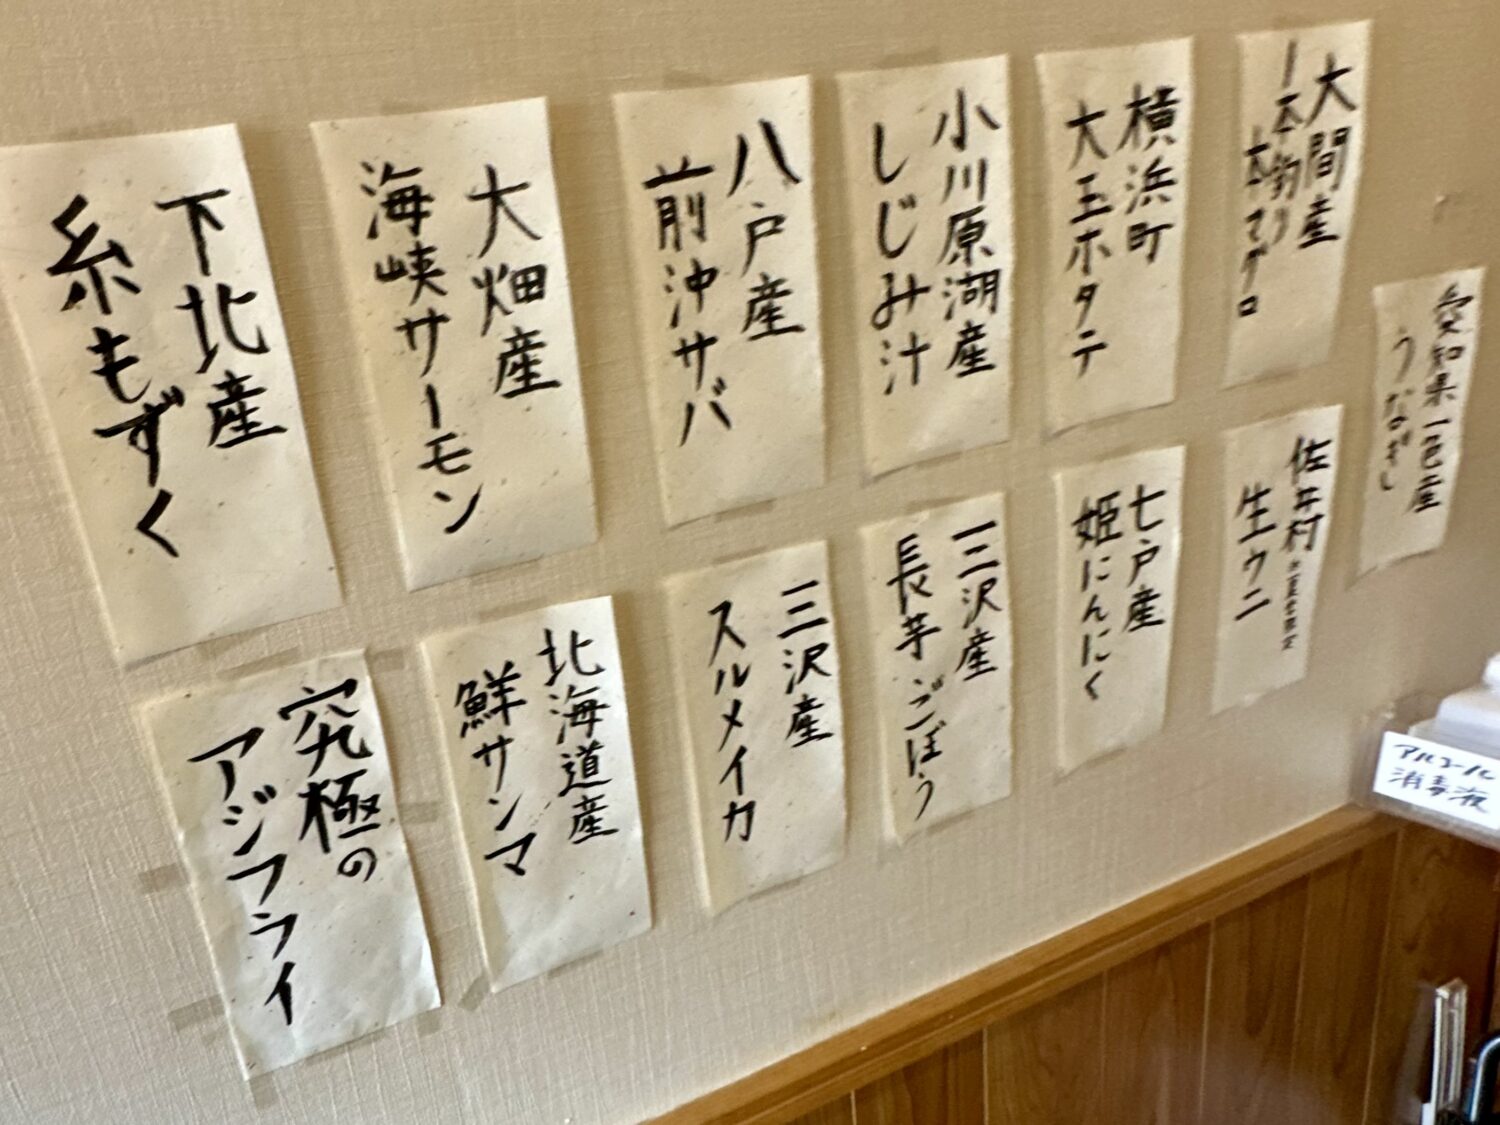 大間産
一本釣り
本マグロ
横浜町
大玉ホタテ
小川原湖産
しじみ汁
八戸産
前沖サバ
大畑産
海峡サーモン
下北産
糸もずく
愛知県一色産
うなぎ
佐井村
生ウニ
七戸産
姫にんにく
三沢産
長芋ごぼう
三沢産
スルメイカ
北海道産
鮮サンマ
究極の
アジフライ
アルコール
消毒液